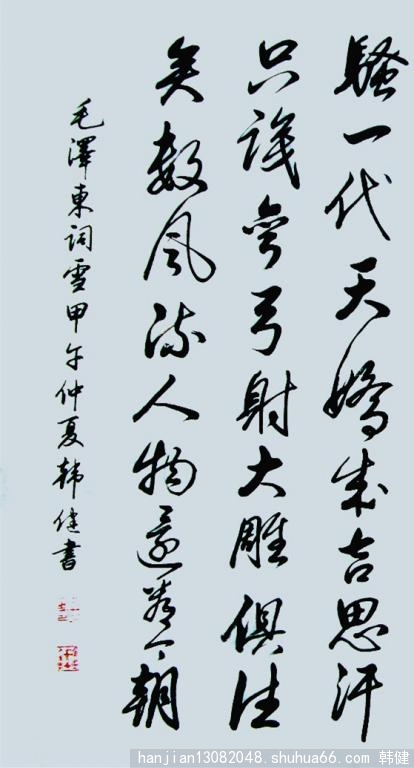 騷一代天嬌成吉思汗
只識弯弓射大雕俱往
矣數風流人物還看今朝
毛澤東詞雪甲午仲夏韩健書
hanjian13082048.shuhua66.com 韩健